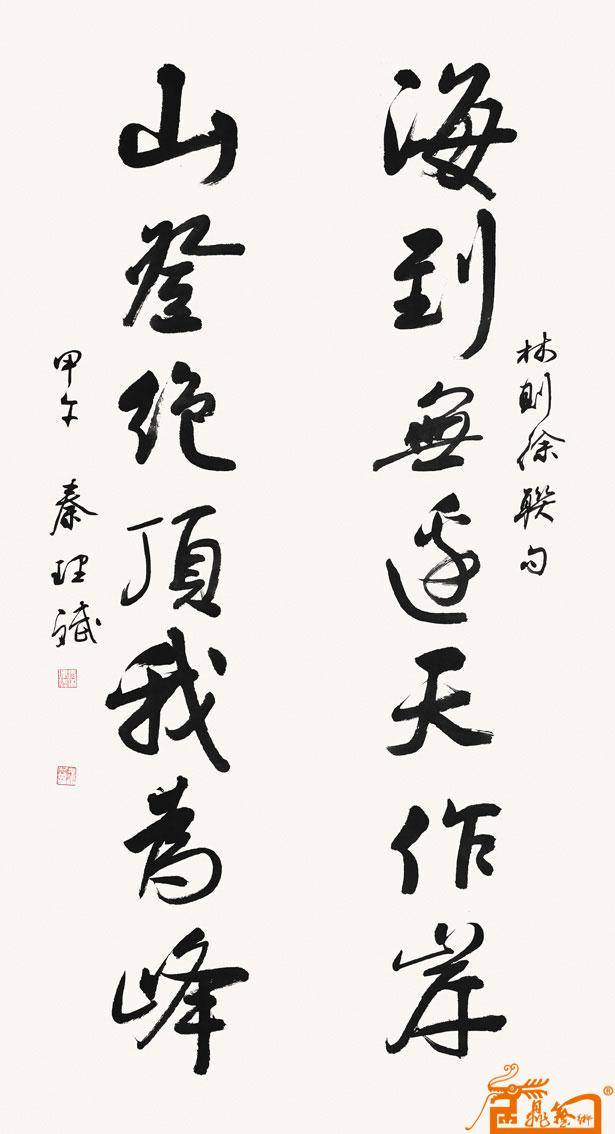 海到無邊天作岸
林則徐聯句
山登絶頂我為峰
甲午 秦理斌